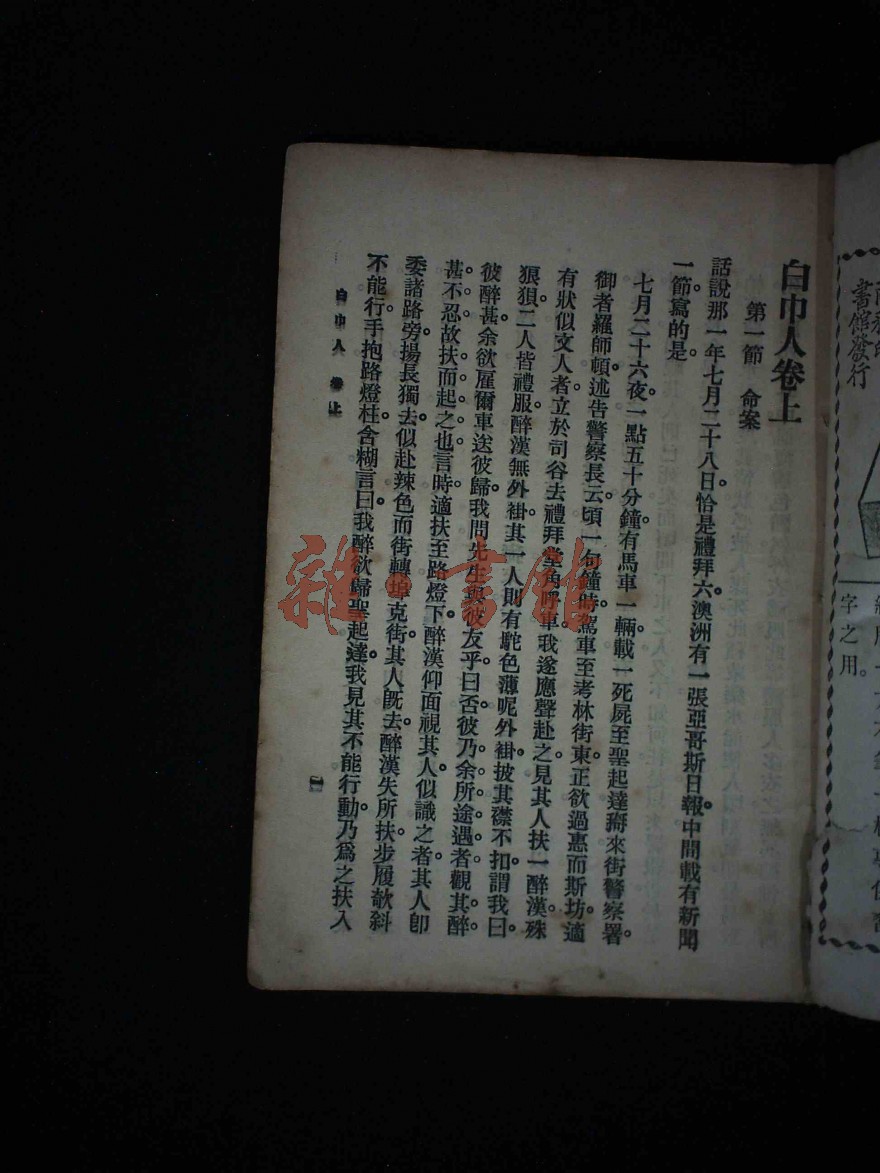 白巾人卷上
第一節　命案
話說那一年七月二十八日。恰是禮拜六。澳洲有一張亞哥斯日報。中間載有新聞
一節。寫的是。
七月二十六夜。一點五十分鐘。有馬車一輛。載一死屍至聖起達。來街警察署。
御者羅師頓述告警察長云。頃一句鐘時。駕車至考林街東。正欲過惠而斯坊。適
有狀似文人者立於司谷去禮拜堂角。車。我遂應聲赴之。見其人扶一醉漢。殊
狼狽。二人皆禮服。醉漢無外褂。其一人則有駝色薄呢外褂。披其襟不扣。謂我曰。
彼醉甚。余欲雇爾車送彼歸。我問先生與彼友乎。曰否。彼乃余所途遇者。觀其醉
甚。不忍。故扶而起之也。言時。適扶至路燈下。醉漢仰面視其人。似識之者。其人卽
委諸路旁。揚長獨去。似赴辣色而街。轉埠克街。其人旣去。醉漢失所扶。步履欹斜
不能行。手抱路燈柱。含糊言曰。我醉欲歸聖起達。我見其不能行動。乃爲之扶入
白巾人　卷上
一
書館發行
字之用。
雜·書館